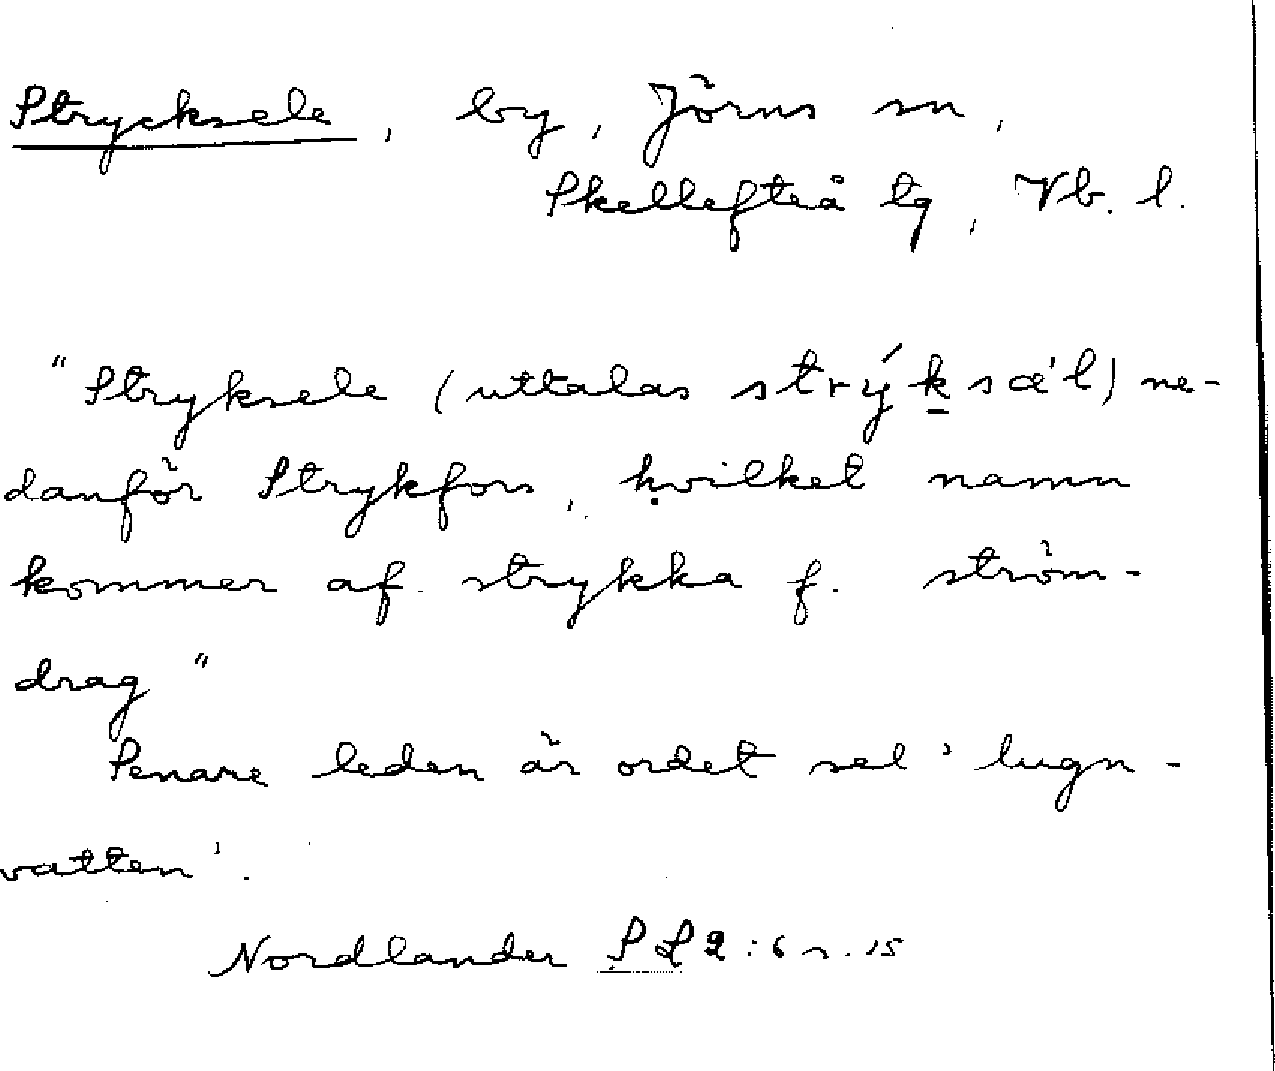 Strycksele, by, Jörns sn,
Skellefteå tg, Vb. l.
"Stryksele (uttalas strýksæ'l) ne-
danför Strykfors, hvilket namn
kommer af strykka f. ström-
drag"
Senare leden är ordet sel 'lugn-
vatten'.
Nordlander SL 2:6 s. 15